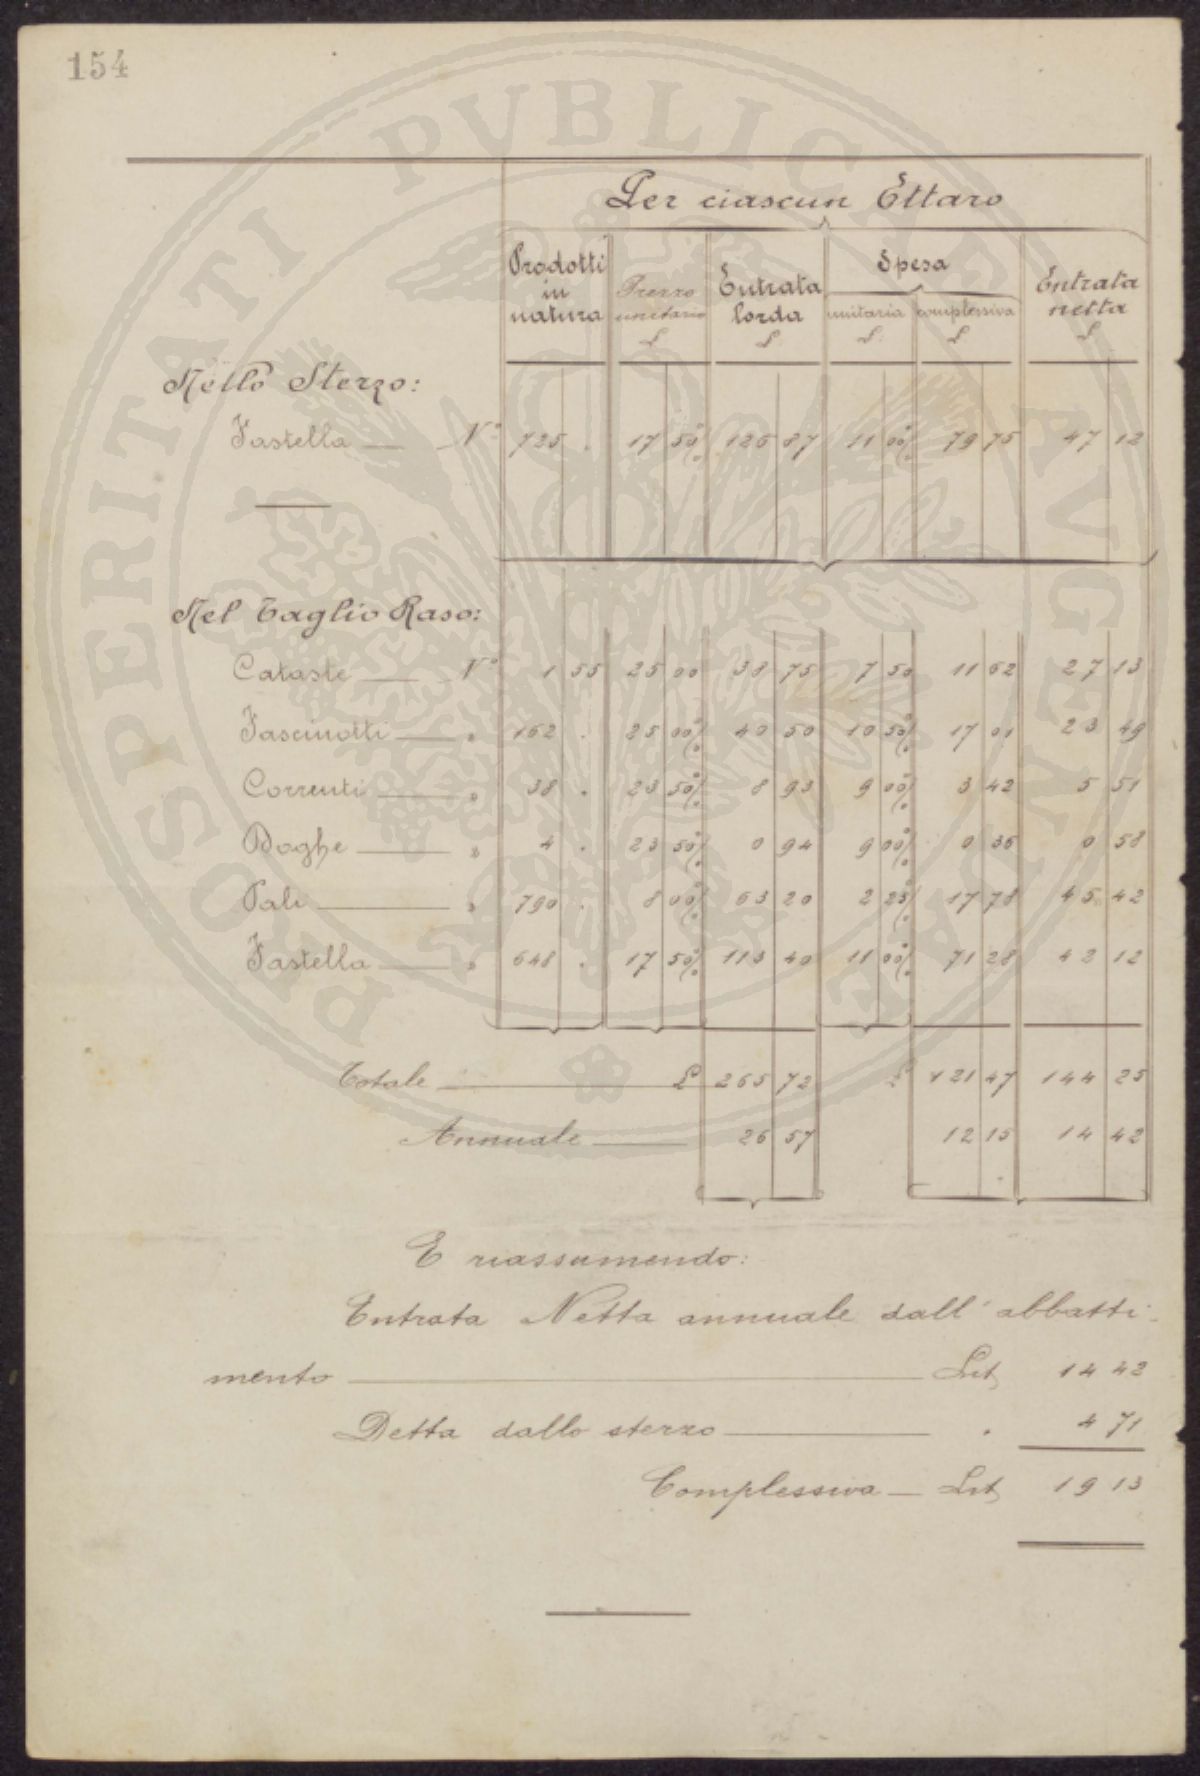 154
PROSPERITATI PUBLICAE AUGENDAE
Per ciascun Ettaro
Prodotti in natura | Prezzo unitario £ | Entrata lorda £ | Spesa unitaria £ | Spesa complessiva £ | Entrata netta £
Nello Sterzo:
Fastella — N.° 725 . 17 50 % 126 87 11 00 % 79 75 47 12
Nel Taglio Raso:
Cataste — N.° 1 55 25 00 38 75 7 50 11 62 27 13
Fascinotti — " 162 . 25 00 % 40 50 10 50 % 17 01 23 49
Correnti — " 38 . 23 50 % 8 93 9 00 % 3 42 5 51
Doghe — " 4 . 23 50 % 0 94 9 00 % 0 36 0 58
Pali — " 790 . 8 00 % 63 20 2 25 % 17 78 45 42
Fastella — " 648 . 17 50 % 113 40 11 00 % 71 28 42 12
Totale — £ 265 72 £ 121 47 144 25
Annuale — 26 57 12 15 14 42
E riassumendo:
Entrata Netta annuale dall' abbatti-
mento — Lit 14 42
Detta dallo sterzo — " 4 71
Complessiva — Lit 19 13